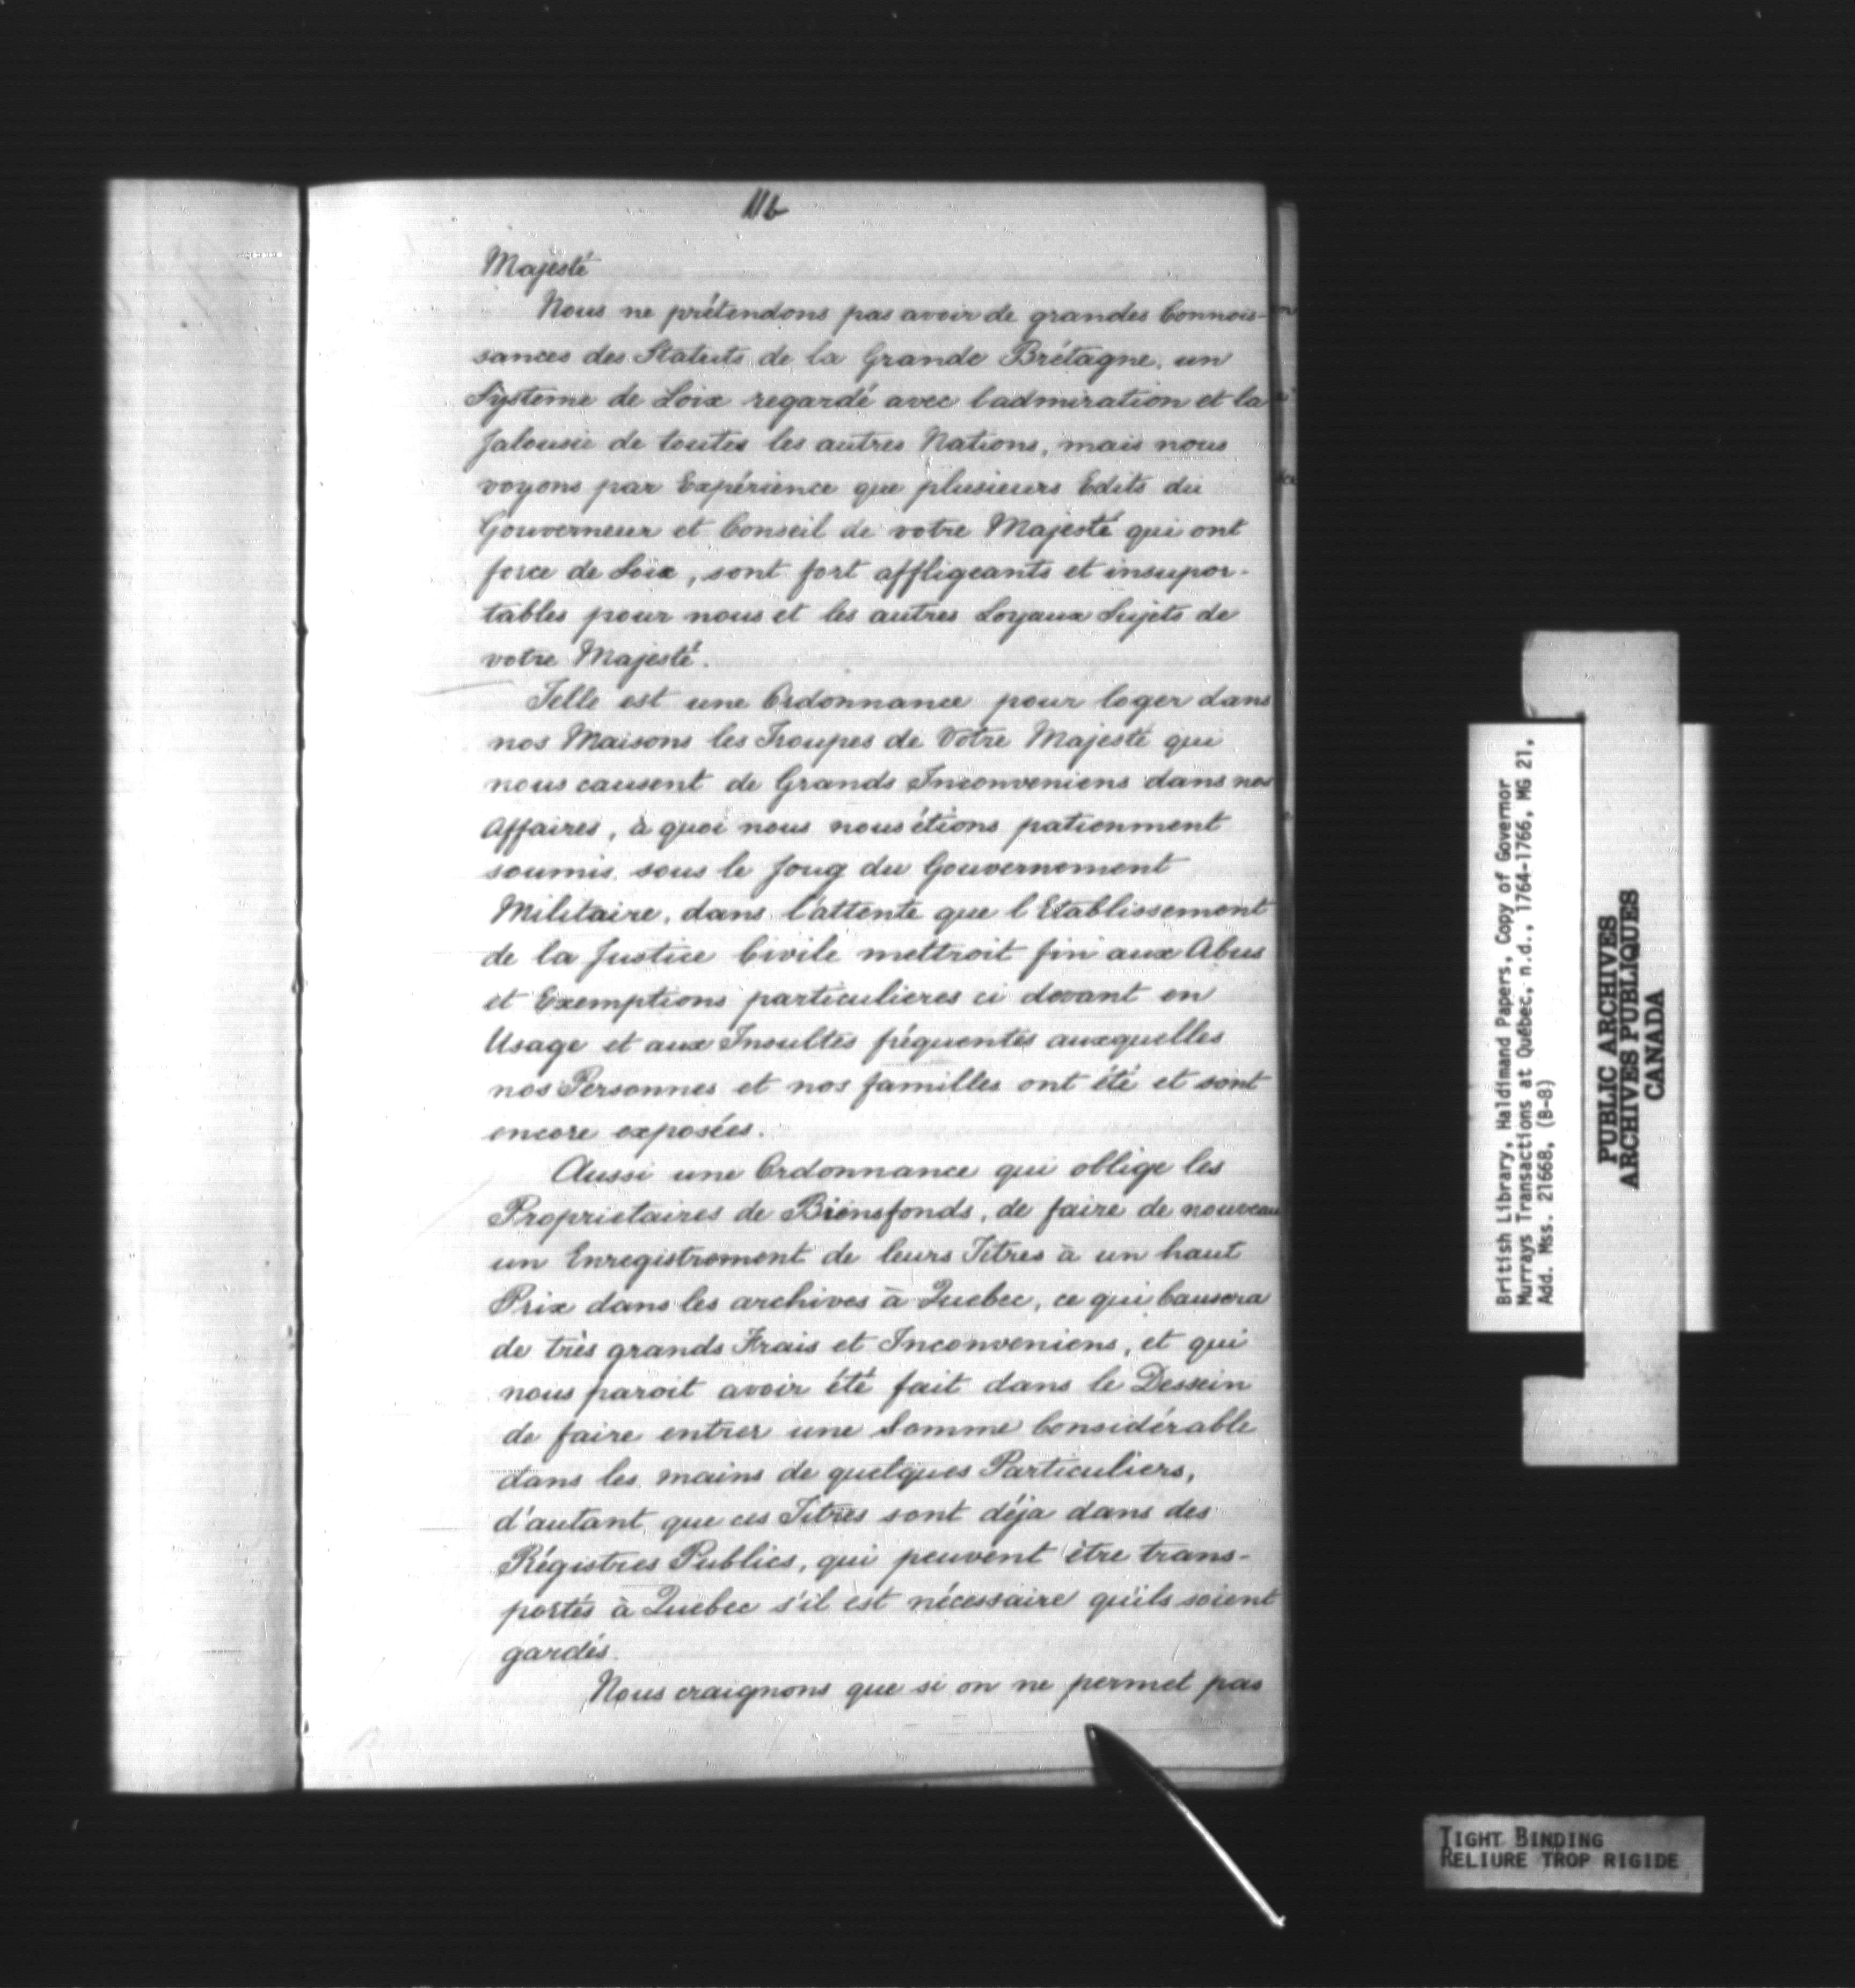 116
Majesté
Nous ne prétendons pas avoir de grandes Connois-
sances des Statuts de la Grande Brétagne, un
Systeme de Loix regardé avec l'admiration et la
Jalousie de toutes les autres Nations, mais nous
voyons par Expérience que plusieurs Edits du
Gouverneur et Conseil de votre Majesté qui ont
force de Loix, sont fort affligeants et insupor-
tables pour nous et les autres Loyaux Sujets de
votre Majesté.
Telle est une Ordonnance pour loger dans
nos Maisons les Troupes de Votre Majesté qui
nous causent de Grands Inconveniens dans nos
Affaires, à quoi nous nous étions patienment
soumis sous le Joug du Gouvernement
Militaire, dans l'attente que l'Etablissement
de la Justice Civile mettroit fin aux Abus
et Exemptions particulieres ci devant en
Usage et aux Insultes fréquentes auxquelles
nos Personnes et nos familles ont été et sont
encore exposées.
Aussi une Ordonnance qui oblige les
Proprietaires de Biensfonds, de faire de nouveau
un Enregistrement de leurs Titres à un haut
Prix dans les archives à Quebec, ce qui Causera
de très grands Frais et Inconveniens, et qui
nous paroit avoir été fait dans le Dessein
de faire entrer une Somme Considérable
dans les mains de quelques Particuliers,
d'autant que ces Titres sont déja dans des
Régistres Publics, qui peuvent être trans-
portés à Quebec s'il est nécessaire qu'ils soient
gardés.
Nous craignons que si on ne permet pas
British Library, Haldimand Papers, Copy of Governor
Murrays Transactions at Québec, n.d., 1764-1766, MG 21,
Add. Mss. 21668, (B-8)
PUBLIC ARCHIVES
ARCHIVES PUBLIQUES
CANADA
TIGHT BINDING
RELIURE TROP RIGIDE